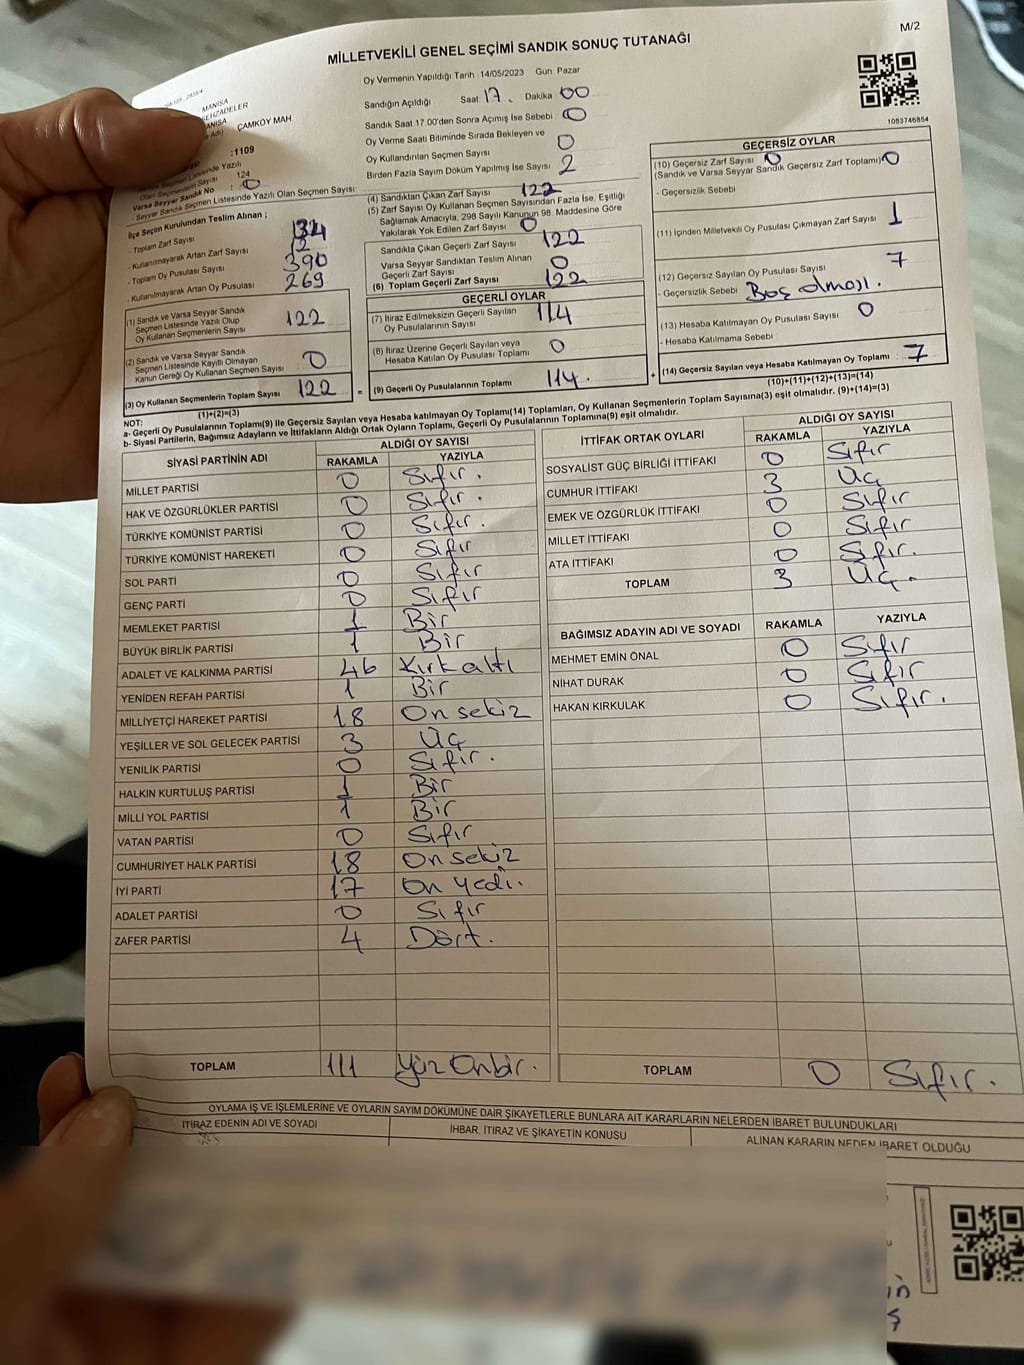 M/2
MİLLETVEKİLİ GENEL SEÇİMİ SANDIK SONUÇ TUTANAĞI
Oy Vermenin Yapıldığı Tarih 14/05/2023 Gün Pazar
Sandığın Açıldığı Saat 17. Dakika 00
Sandık Saat 17.00'den Sonra Açımış İse Sebebi 0
Oy Verme Saati Bitiminde Sırada Bekleyen ve
Oy Kullandırılan Seçmen Sayısı 0
Birden Fazla Sayım Döküm Yapılmış İse Sayısı 2
MANİSA
ŞEHZADELER
ÇAMKÖY MAH
:1109
124
Varsa Seyyar Sandık No : 0
- Seyyar Sandık Seçmen Listesinde Yazılı Olan Seçmen Sayısı:
İlçe Seçim Kurulundan Teslim Alınan ;
- Toplam Zarf Sayısı
- Kullanılmayarak Artan Zarf Sayısı 12
- Toplam Oy Pusulası Sayısı 390
- Kullanılmayarak Artan Oy Pusulası 269
(1) Sandık ve Varsa Seyyar Sandık
Seçmen Listesinde Yazılı Olup
Oy Kullanan Seçmenlerin Sayısı 122
(2) Sandık ve Varsa Seyyar Sandık
Seçmen Listesinde Kayıtlı Olmayan
Kanun Gereği Oy Kullanan Seçmen Sayısı 0
(3) Oy Kullanan Seçmenlerin Toplam Sayısı 122
(1)+(2)=(3)
(4) Sandıktan Çıkan Zarf Sayısı 122
(5) Zarf Sayısı Oy Kullanan Seçmen Sayısından Fazla İse, Eşitliği
Sağlamak Amacıyla, 298 Sayılı Kanunun 98. Maddesine Göre
Yakılarak Yok Edilen Zarf Sayısı 0
Sandıkta Çıkan Geçerli Zarf Sayısı 122
Varsa Seyyar Sandıktan Teslim Alınan
Geçerli Zarf Sayısı 0
(6) Toplam Geçerli Zarf Sayısı 122
GEÇERLİ OYLAR
(7) İtiraz Edilmeksizin Geçerli Sayılan
Oy Pusulalarının Sayısı 114
(8) İtiraz Üzerine Geçerli Sayılan veya
Hesaba Katılan Oy Pusulası Toplamı 0
= (9) Geçerli Oy Pusulalarının Toplamı 114.
1083746854
GEÇERSİZ OYLAR
(10) Geçersiz Zarf Sayısı 0
(Sandık ve Varsa Seyyar Sandık Geçersiz Zarf Toplamı) 0
- Geçersizlik Sebebi
(11) İçinden Milletvekili Oy Pusulası Çıkmayan Zarf Sayısı 1
(12) Geçersiz Sayılan Oy Pusulası Sayısı 7
- Geçersizlik Sebebi Boş olması.
(13) Hesaba Katılmayan Oy Pusulası Sayısı 0
- Hesaba Katılmama Sebebi
+ (14) Geçersiz Sayılan veya Hesaba Katılmayan Oy Toplamı : 7
(10)+(11)+(12)+(13)=(14)
NOT:
a- Geçerli Oy Pusulalarının Toplamı(9) ile Geçersiz Sayılan veya Hesaba katılmayan Oy Toplamı(14) Toplamları, Oy Kullanan Seçmenlerin Toplam Sayısına(3) eşit olmalıdır. (9)+(14)=(3)
b- Siyasi Partilerin, Bağımsız Adayların ve İttifakların Aldığı Ortak Oyların Toplamı, Geçerli Oy Pusulalarının Toplamına(9) eşit olmalıdır.
SİYASİ PARTİNİN ADI ALDIĞI OY SAYISI
RAKAMLA YAZIYLA
MİLLET PARTİSİ 0 Sıfır.
HAK VE ÖZGÜRLÜKLER PARTİSİ 0 Sıfır.
TÜRKİYE KOMÜNİST PARTİSİ 0 Sıfır.
TÜRKİYE KOMÜNİST HAREKETİ 0 Sıfır
SOL PARTİ 0 Sıfır
GENÇ PARTİ 0 Sıfır
MEMLEKET PARTİSİ 1 Bir
BÜYÜK BİRLİK PARTİSİ 1 Bir
ADALET VE KALKINMA PARTİSİ 46 Kırkaltı
YENİDEN REFAH PARTİSİ 1 Bir
MİLLİYETÇİ HAREKET PARTİSİ 18 Onsekiz
YEŞİLLER VE SOL GELECEK PARTİSİ 3 Üç
YENİLİK PARTİSİ 0 Sıfır.
HALKIN KURTULUŞ PARTİSİ 1 Bir
MİLLİ YOL PARTİSİ 1 Bir
VATAN PARTİSİ 0 Sıfır
CUMHURİYET HALK PARTİSİ 18 Onsekiz
İYİ PARTİ 17 On yedi.
ADALET PARTİSİ 0 Sıfır
ZAFER PARTİSİ 4 Dört.
TOPLAM 111 Yüz Onbir.
İTTİFAK ORTAK OYLARI ALDIĞI OY SAYISI
RAKAMLA YAZIYLA
SOSYALİST GÜÇ BİRLİĞİ İTTİFAKI 0 Sıfır
CUMHUR İTTİFAKI 3 Üç
EMEK VE ÖZGÜRLÜK İTTİFAKI 0 Sıfır
MİLLET İTTİFAKI 0 Sıfır
ATA İTTİFAKI 0 Sıfır.
TOPLAM 3 Üç.
BAĞIMSIZ ADAYIN ADI VE SOYADI RAKAMLA YAZIYLA
MEHMET EMİN ÖNAL 0 Sıfır
NİHAT DURAK 0 Sıfır
HAKAN KIRKULAK 0 Sıfır.
TOPLAM 0 Sıfır.
OYLAMA İŞ VE İŞLEMLERİNE VE OYLARIN SAYIM DÖKÜMÜNE DAİR ŞİKAYETLERLE BUNLARA AİT KARARLARIN NELERDEN İBARET BULUNDUKLARI
İTİRAZ EDENİN ADI VE SOYADI İHBAR, İTİRAZ VE ŞİKAYETİN KONUSU ALINAN KARARIN NEDEN İBARET OLDUĞU